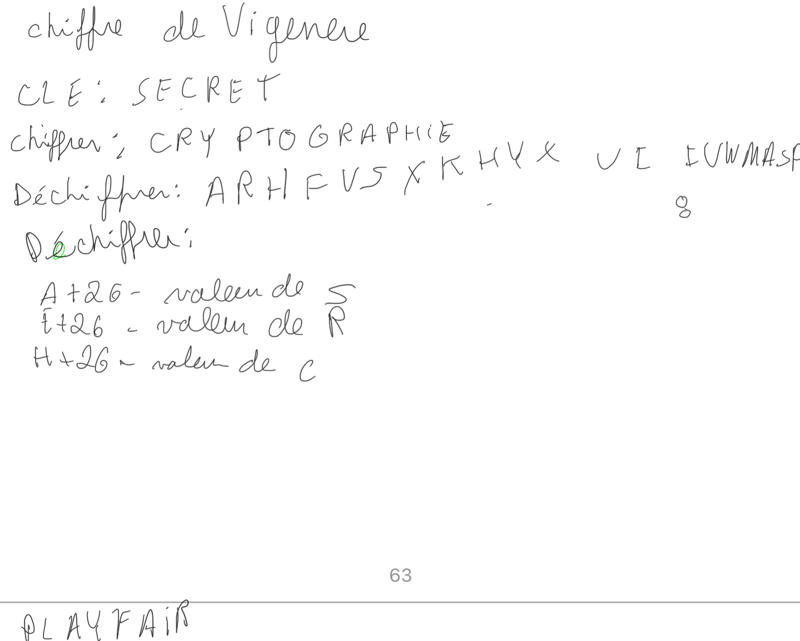 chiffre de Vigenere
CLE : SECRET
chiffrer : CRYPTOGRAPHiE
Déchiffrer : ARHFVSXKHYX UI IVWMASP
8
Déchiffrer :
A+26 - valeur de S
E+26 - valeur de R
H+26 - valeur de C
63
PLAYFAiR